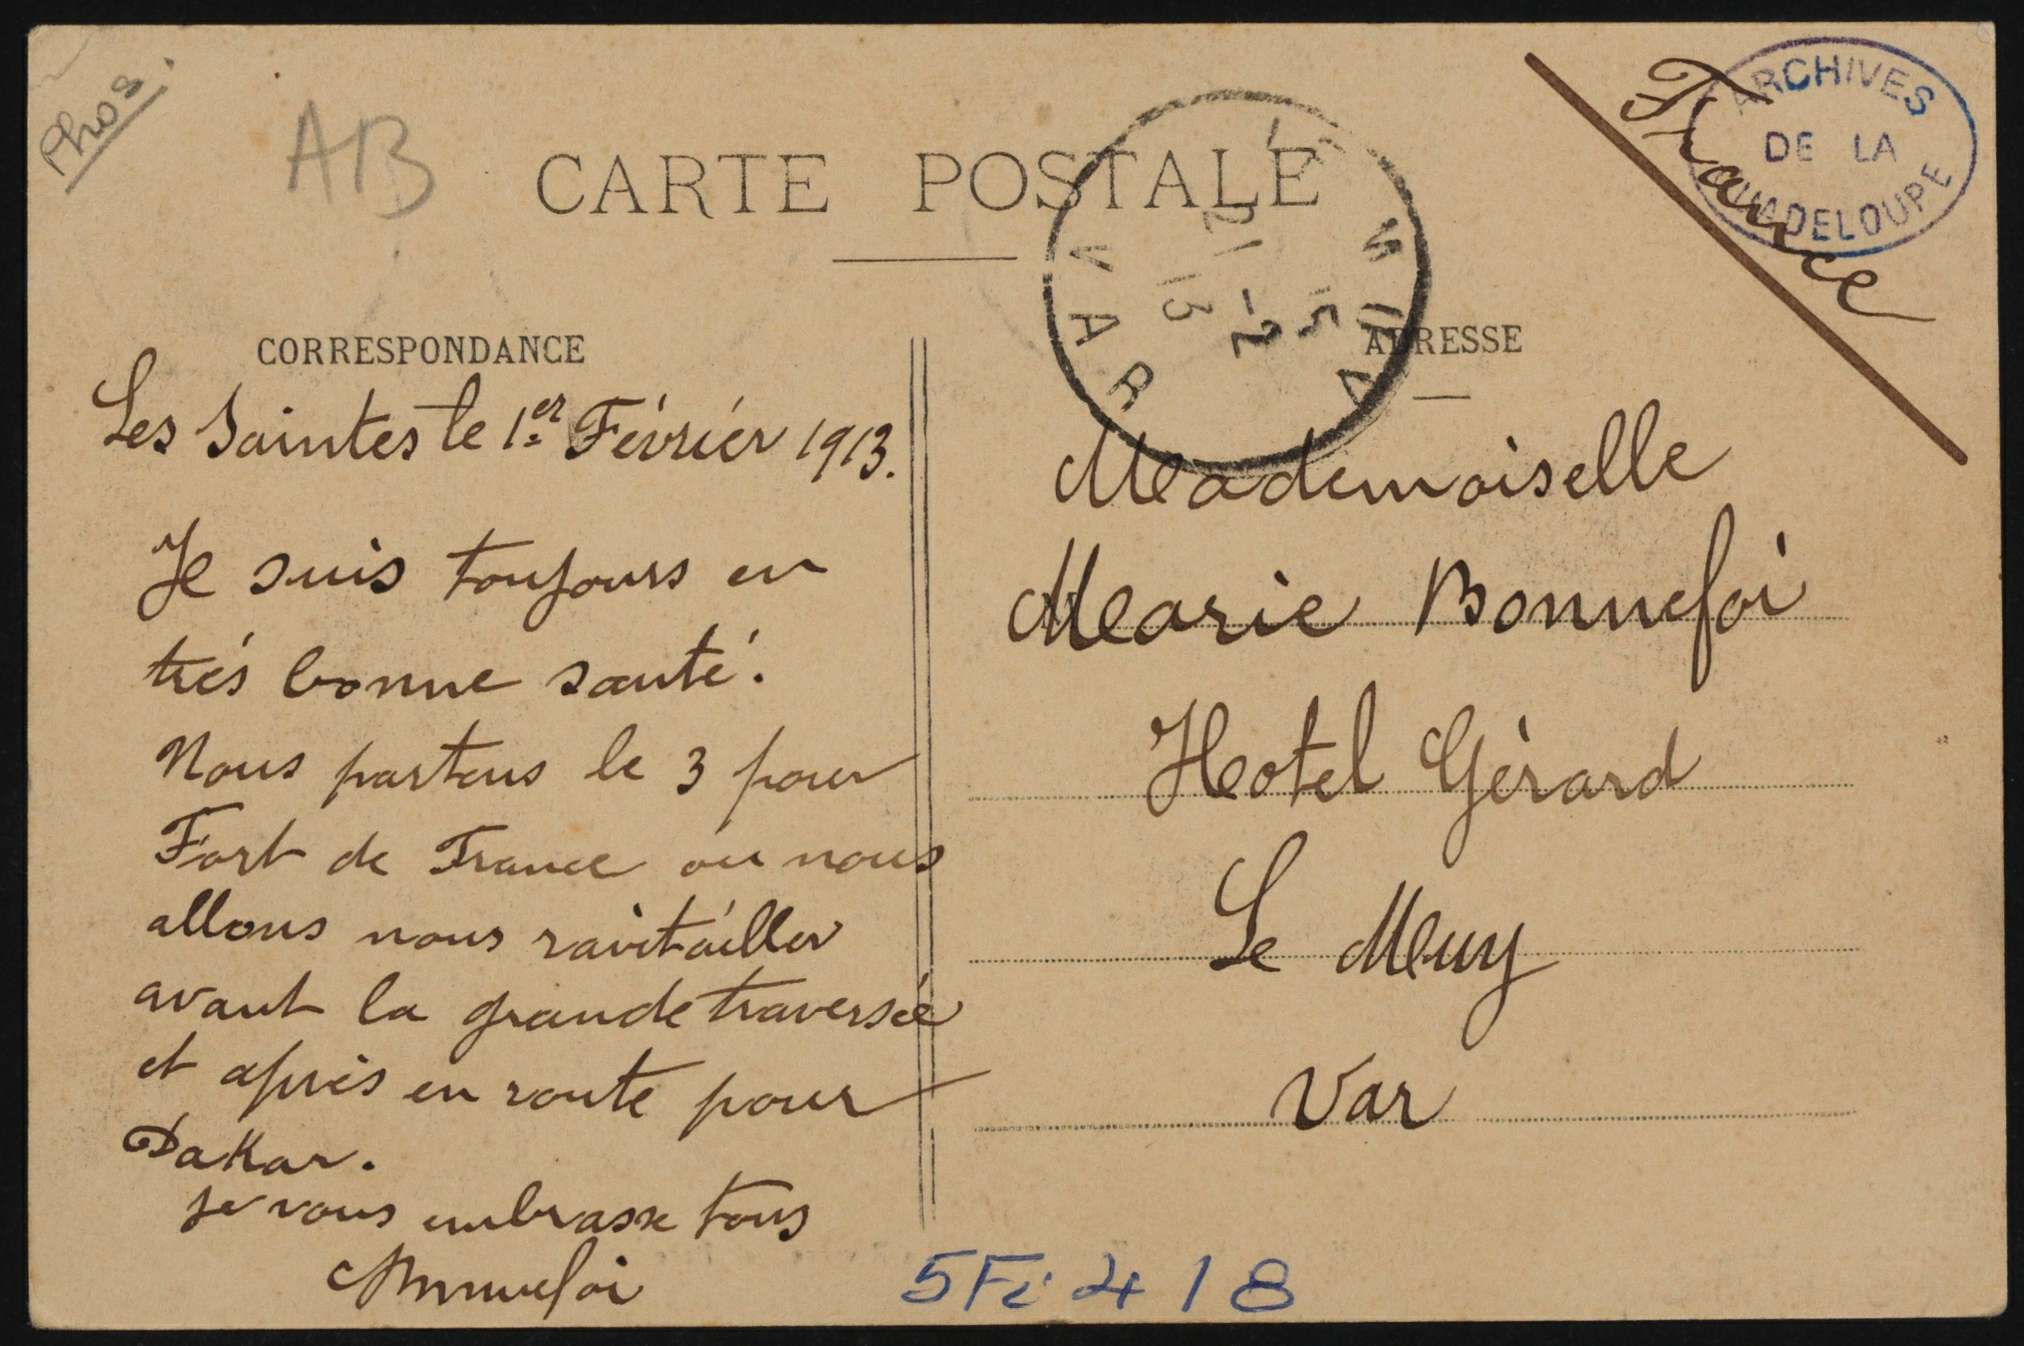 Phos.
AB
CARTE POSTALE
France
ARCHIVES
DE LA
GUADELOUPE
LE MUY
15
21 -2
13
VAR
CORRESPONDANCE
Les Saintes le 1er Février 1913.
Je suis toujours en
trés bonne santé.
Nous partons le 3 pour
Fort de France ou nous
allons nous ravitailler
avant la grande traversée
et après en route pour
Dakar.
Je vous embrasse tous
Bonnefoi
ADRESSE
Mademoiselle
Marie Bonnefoi
Hotel Gérard
Le Muy
Var
5Fi 418